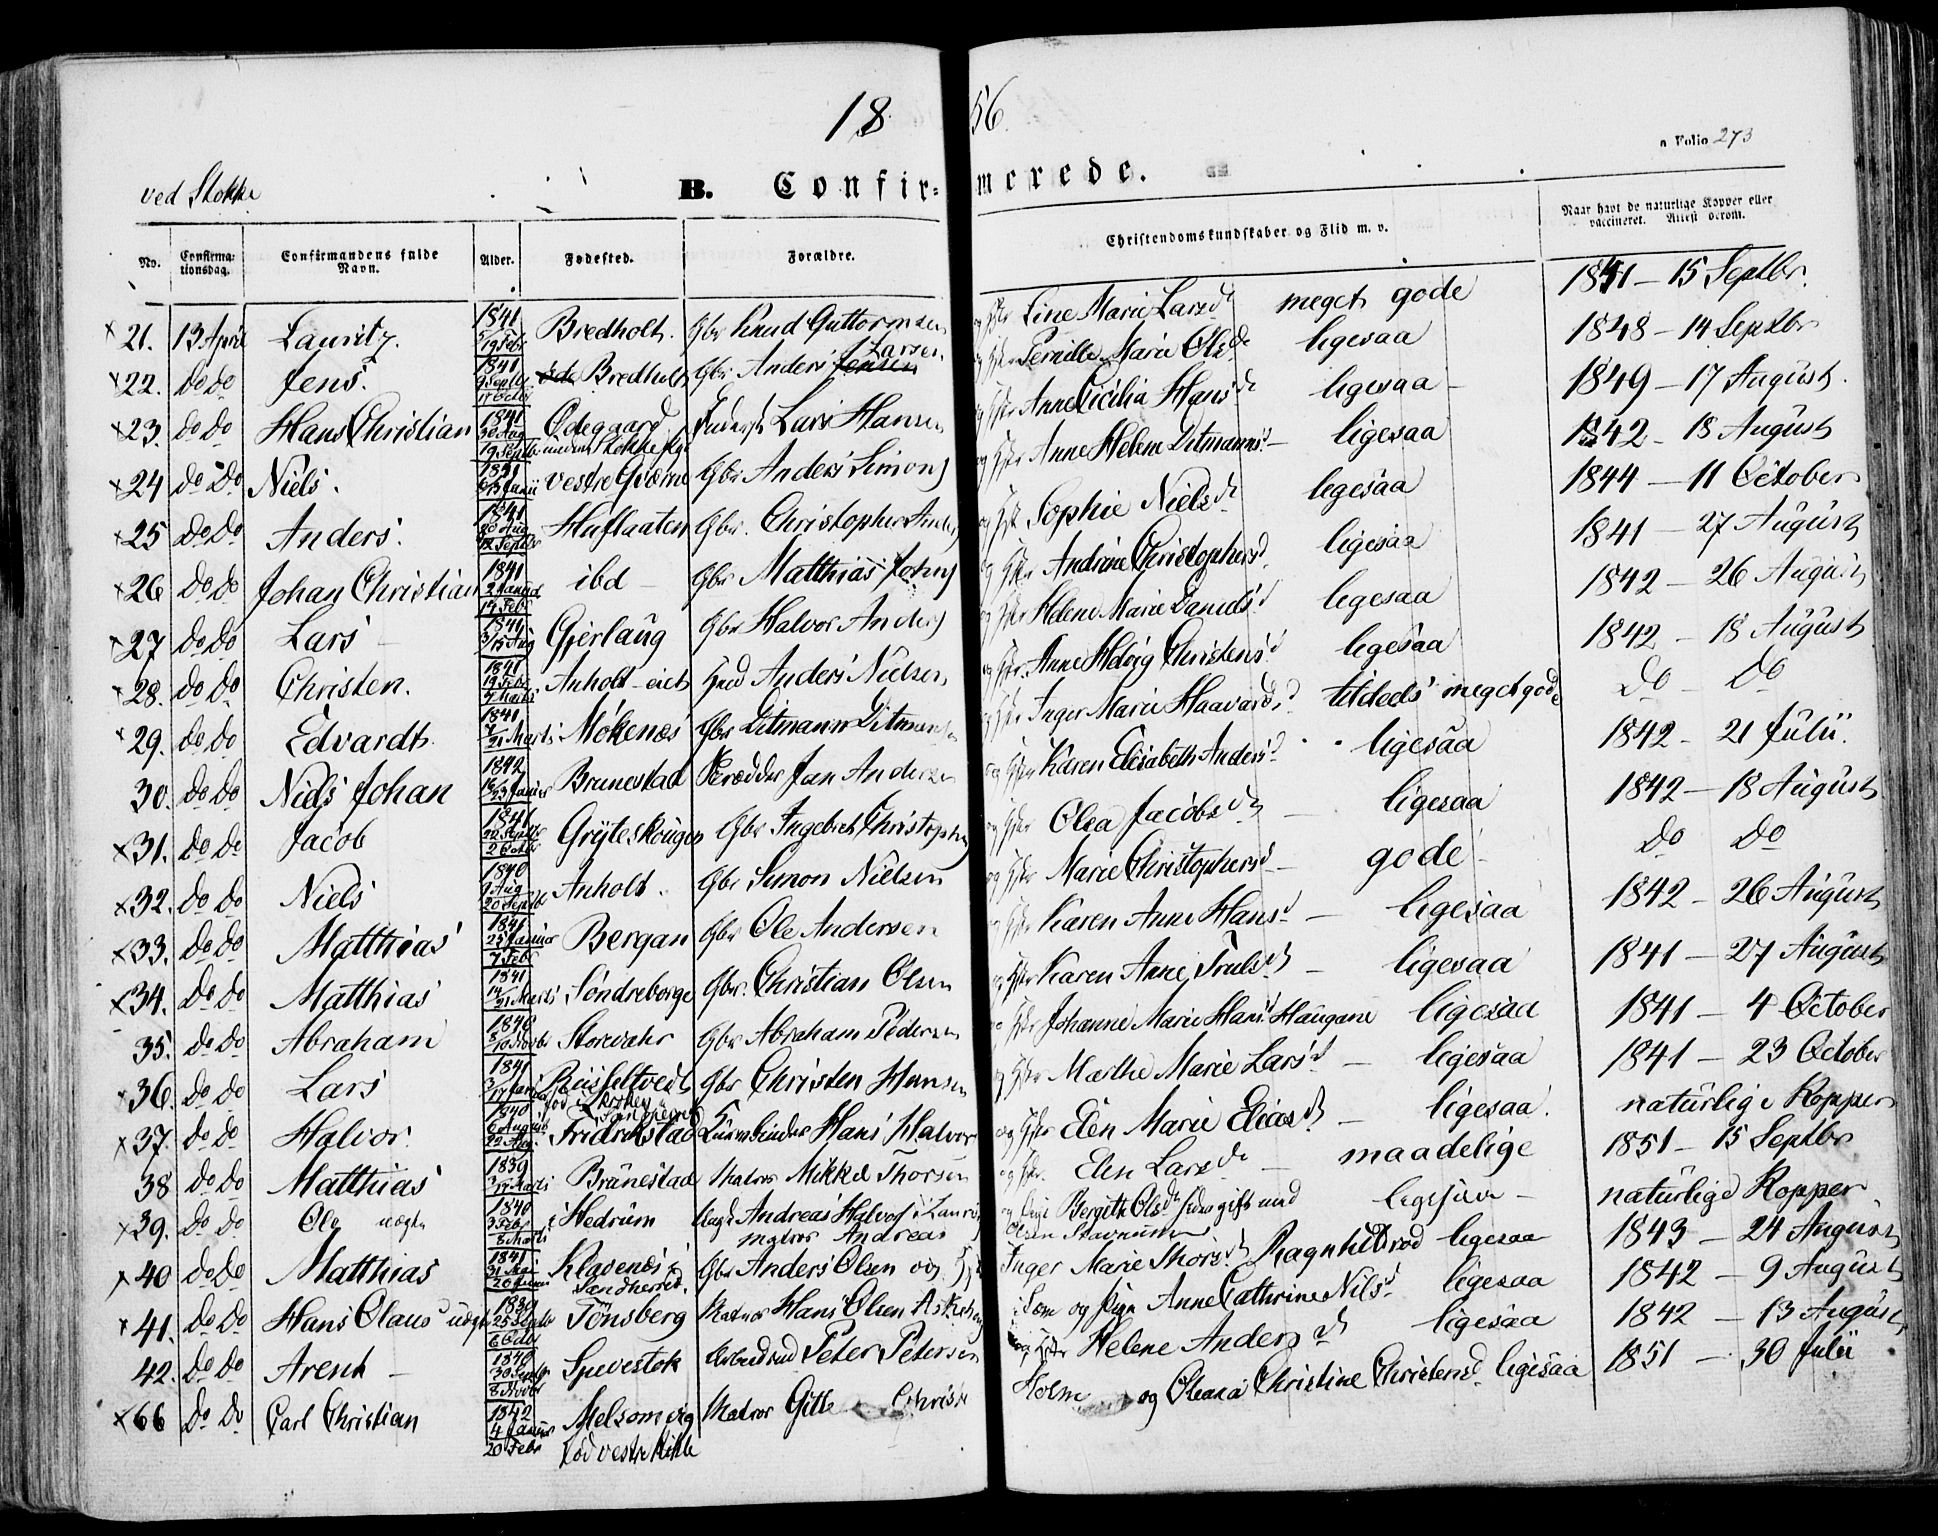 1856.
Folio 273
ved Stokke
B. Confirmerede.
No. Confirmationsdag. Confirmandens fulde Navn. Alder. Fødested. Forældre. Christendomskundskaber og Flid m. v. Naar havt de naturlige Kopper eller vaccineret. Attest derom.
21. 13 April Lauritz. 1841 19 Febr Bredholt. Gbr Knud Guttormsen og Hstr Line Marie Larsd meget gode 1851 - 15 Septbr.
22. do do Jens. 1841 9 Septbr 17 Octbr Bredholt Gbr Anders Jensen Larsen og Hstr Pernille Marie Olsd ligesaa 1848 - 14 Septbr
23. do do Hans Christian 1841 30 Aug 19 Septb Ødegaard under Stokke Lars Hansen og Hstr Anne Cicilia Hansd ligesaa 1849 - 17 August.
24 do do Niels. 1841 13 Junii vestre Gjærne Gbr Anders Simons og Hstr Anne Helene Ditmannsd ligesaa 1842 - 18 August
25 Do Do Anders. 1841 20 Aug 12 Septbr Huflaaten Gbr. Christopher Anders og Hstr Sophie Nielsd ligesaa 1844 - 11 October
26 Do Do Johan Christian 1841 2 Januar 14 Febr ibd - Gbr Matthias Johns og Hstr Andrine Christophersd. ligesaa 1841 - 27 August
27 Do Do Lars 1841 15 Aug Gjerlaug Gbr Halvor Anders og Hstr Helene Marie Daniels d ligesaa 1842 - 26 August
28. Do Do Christen. 1841 19 Febr 7 Marts Anholt-eiet Hmd Anders Nielsen og Hstr. Anne Hedvig Christensd ligesaa 1842 - 18 August
29. do do Edvardt 1841 21 Marts Møkenæs Gbr Ditmann Ditmansen og Hstr Inger Marie Haavardsd tildeels meget gode Do - Do
30. Do Do Niels Johan 1842 23 Januar Brunestad Skrædder Jan Andersen og Hstr Karen Elisabeth Andersd ligesaa 1842 - 21 Julii.
31. Do Do Jacob 1841 20 Septbr Gryteskougen Gbr Ingebret Christophs og Hstr Olea Jacobsd ligesaa 1842 - 18 August
32. Do Do Niels 1840 9 Aug 20 Septbr Anholt. Gbr Simon Nielsen og Hstr Marie Christophersd - gode Do Do
33. Do Do Matthias 1841 25 Januar 7 Febr Bergan Gbr Ole Andersen og Hstr Karen Anne Hansd - ligesaa 1842 - 26 August
34. Do Do Matthias 1841 14 21 Marts Søndreborge Gbr. Christian Olsen og Hstr Karen Anne Trulsd - ligesaa 1841 - 27 August
35. Do Do Abraham 1840 10 Novbr Storevahr Gbr Abraham Pedersen og Hstr Johanne Marie Hansd Haugane ligesaa 1841 - 4 October
36. Do Do Lars 1841 17 Januar Gbr Christen Hansen og Hstr Marthe Marie Larsd - ligesaa 1841 - 23 October
37. Do Do Halvor. 1840 6 August 22 Aug. Fridrikstad Hans Halvor og Hstr Elen Marie Eliasd - ligesaa. naturlige Kopper
38 Do Do Matthias 1839 17 Marts Brunestad Matros Mikkel Thorsen og Hstr. Elen Larsd - maadelige 1851 - 15 Septbr
39. Do Do Ole uægte 1840 3 Febr 8 Marts i Hedrum Andreas Halvors i Laurvig og Pige Bergitte Olsd gift med matros Andreas Olsen ligesaa - naturlige Kopper
40 Do Do Matthias 1841 31 Mai 20 Junii Klavenæs i Sandherred. Gbr Anders Olsen og Hstr Inger Marie Thorsd Ragnhildrød ligesaa 1843 - 24 August
41. Do Do Hans Olaus uægte 1839 25 Septbr 6 Octbr Tønsberg Matros Hans Olsen i Sem og Pige Anne Cathrine Nilsd ligesaa 1842 - 9 August
42. Do Do Arent - 1840 30 Septbr 8 Novbr Spevestok Arbeidsmd Peter Petersen og Hstr Helene Andersd ligesaa 1842 - 13 August
66 Do Do Carl Christian 1842 4 Januar 20 Febr Melsomvig fød vestre Matros Holm og Oleana Christine Christensd. ligesaa 1851 - 30 Julii